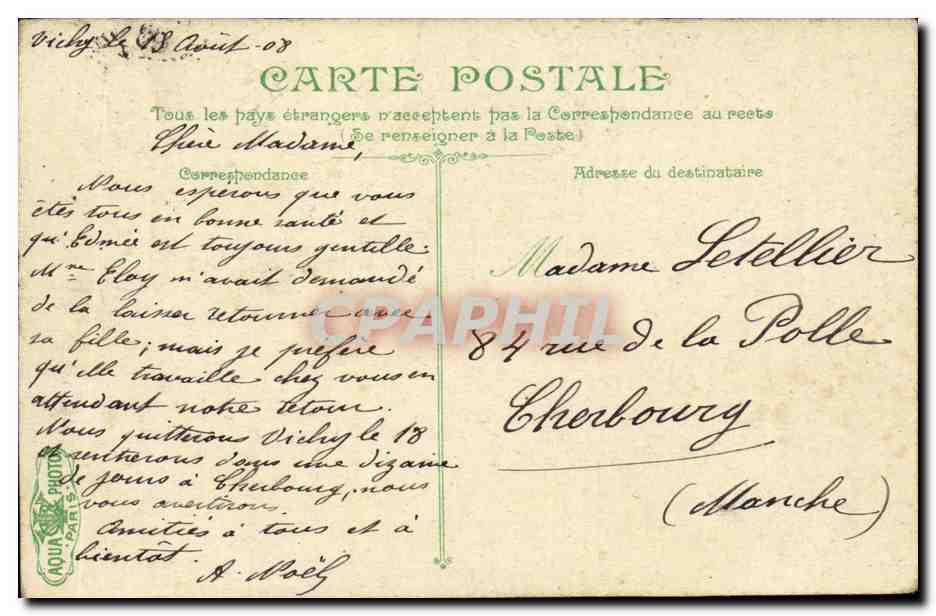 Vichy le 13 Août - 08
CARTE POSTALE
Tous les pays étrangers n'acceptent pas la Correspondance au recto
(Se renseigner à la Poste)
Chère Madame,
Correspondance
Nous esperons que vous
êtes tous en bonne santé et
qu'Edmée est toujours gentille.
Mme Eloy m'avait demandé
de la laisser retourner avec
sa fille; mais je préfère
qu'elle travaille chez vous en
attendant notre retour.
Nous quitterons Vichy le 18
et rentrerons dans une dizaine
de jours à Cherbourg, nous
vous avertirons.
Amitiés à tous et à
bientôt.
A. Noël
Adresse du destinataire
Madame Letellier
84 rue de la Polle
Cherbourg
(Manche)
CPAPHIL
AQUA PHOTO
PARIS